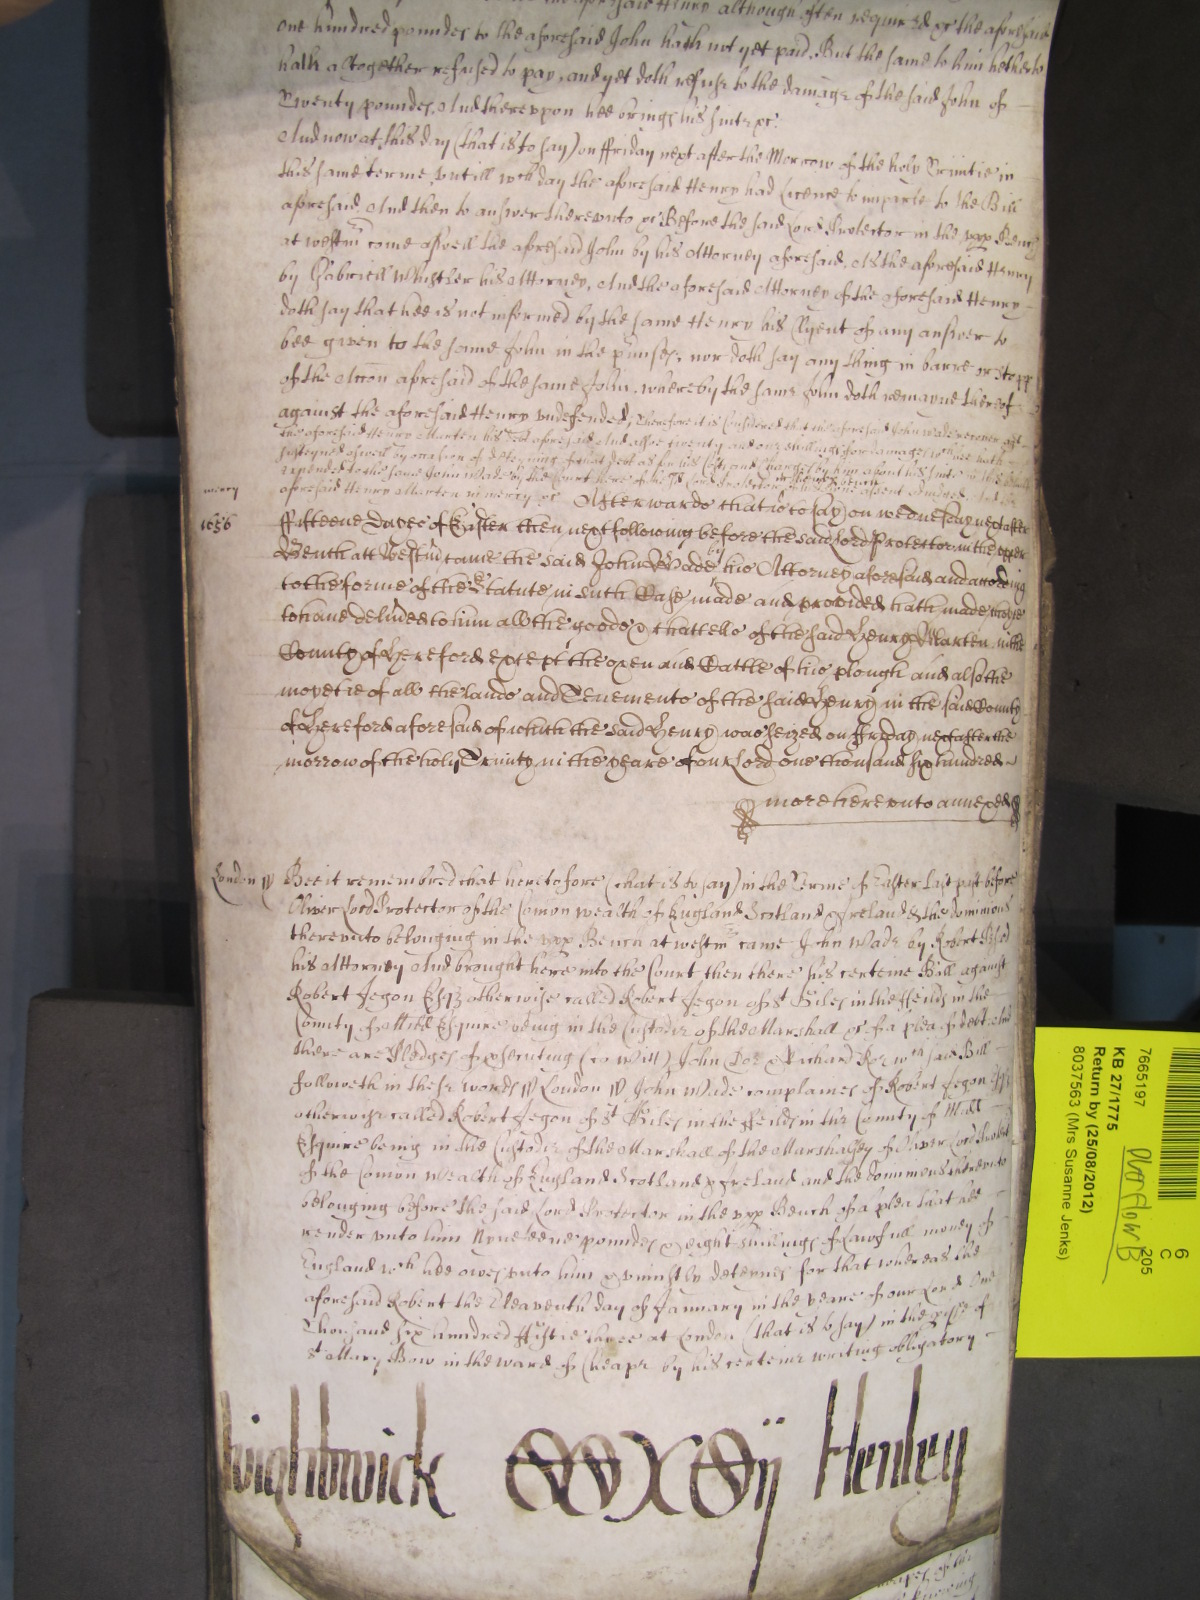 the aforesaid Henry although often required &c the aforesaid
one hundred poundes to the aforesaid John hath not yet paid But the same to him hetherto
hath altogether refused to pay, and yet doth refuse to the damage of the said John of
Twenty poundes, And therevpon hee brings his suite &c.
And now at this day (that is to say) on ffriday next after the Morrow of the holy Trinitie in
this same terme vntill wch day the aforesaid Henry had Licence to imparle to the Bill
aforesaid, And then to answer therevnto &c Before the said Lord Protector in the vpp Bench
at westm come aswell the aforesaid John by his Attorney aforesaid, As the aforesaid Henry
by Gabriell Whistler his Attorney, And the aforesaid Attorney of the aforesaid Henry
doth say that hee is not informed by the same Henry his Clyent of any answer to
bee given to the same John in the p'misses, nor doth say any thing in barre or stopp
of the Accon aforesaid of the same John, whereby the same John doth remayne thereof
against the aforesaid Henry vndefended, Therefore it is Considered that the aforesaid John Wade recover agt
the aforesaid Henry Marten his debt aforesaid And alsoe twenty and one shillings for damages wch hee hath
susteyned aswell by occasion of deteyning of that debt as for his Costs and Charges by him about his suite in this behalfe
expended to the same John Wade by the Court here of the sd Lord Protector in the vpper bench of his owne assent adiudged, And the
aforesaid Henry Marten in mercy &c Afterwards that is to say on wednesday next after
mercy
1656
ffifteene Dayes of Easter then next following before the said Lord Protector in the upper
Bench att Westm came the said John Wade by his Attorney aforesaid and according
to the forme of the Statute in such Case made and provided hath made choise
to have delivered to him all the goods & chattells of the said Henry Marten in the
County of Hereford except the oxen and Cattle of his plough and also the
moyetie of all the lands and Tenements of the said Henry in the said County
of Hereford aforesaid of which the said Henry was seized on ffriday next after the
morrow of the holy Trinity in the yeare of our Lord one thousand six hundred
more herevnto annexed
London ss Bee it remembred that heretofore (that is to say) in the Terme of Easter last past before
Oliver Lord Protector of the Comon wealth of England Scotland & Ireland & the dominions
therevnto belonging in the vpp Bench at westm came John Wade by Robert
his Attorney And brought here into the Court then there his certeine Bill against
Robert Jegon Esqr otherwise called Robert Jegon of St Giles in the ffeilds in the
County of Midd Esquire being in the Custodie of the Marshall &c of a plea of debt And
there are Pledges of p'secuting (to Witt) John Doe & Richard Roe wch said Bill
followeth in these words ss London ss John Wade complaines of Robert Jegon Esqr
otherwise called Robert Jegon of St Giles in the ffeilds in the County of Midd
Esquire being in the Custodie of the Marshall of the Marshalsey of Oliver Lord Protector
of the Comon Wealth of England Scotland & Ireland and the dominions therevnto
belonging before the said Lord Protector in the vpp Bench of a plea that hee
render vnto him Nyneteene poundes & eight shillings of Lawfull money of
England wch hee owes vnto him & vniustly deteynes for that whereas the
aforesaid Robert the Eleaventh day of January in the yeare of our Lord One
Thousand six hundred ffiftie three at London (that is to say) in the p'ish of
St Mary Bow in the ward of Cheape by his certeine writing obligatory
wightwick Henley
6
C
205
7665197
KB 27/1775
Overflow B
Return by (25/08/2012)
8037563 (Mrs Susanne Jenks)